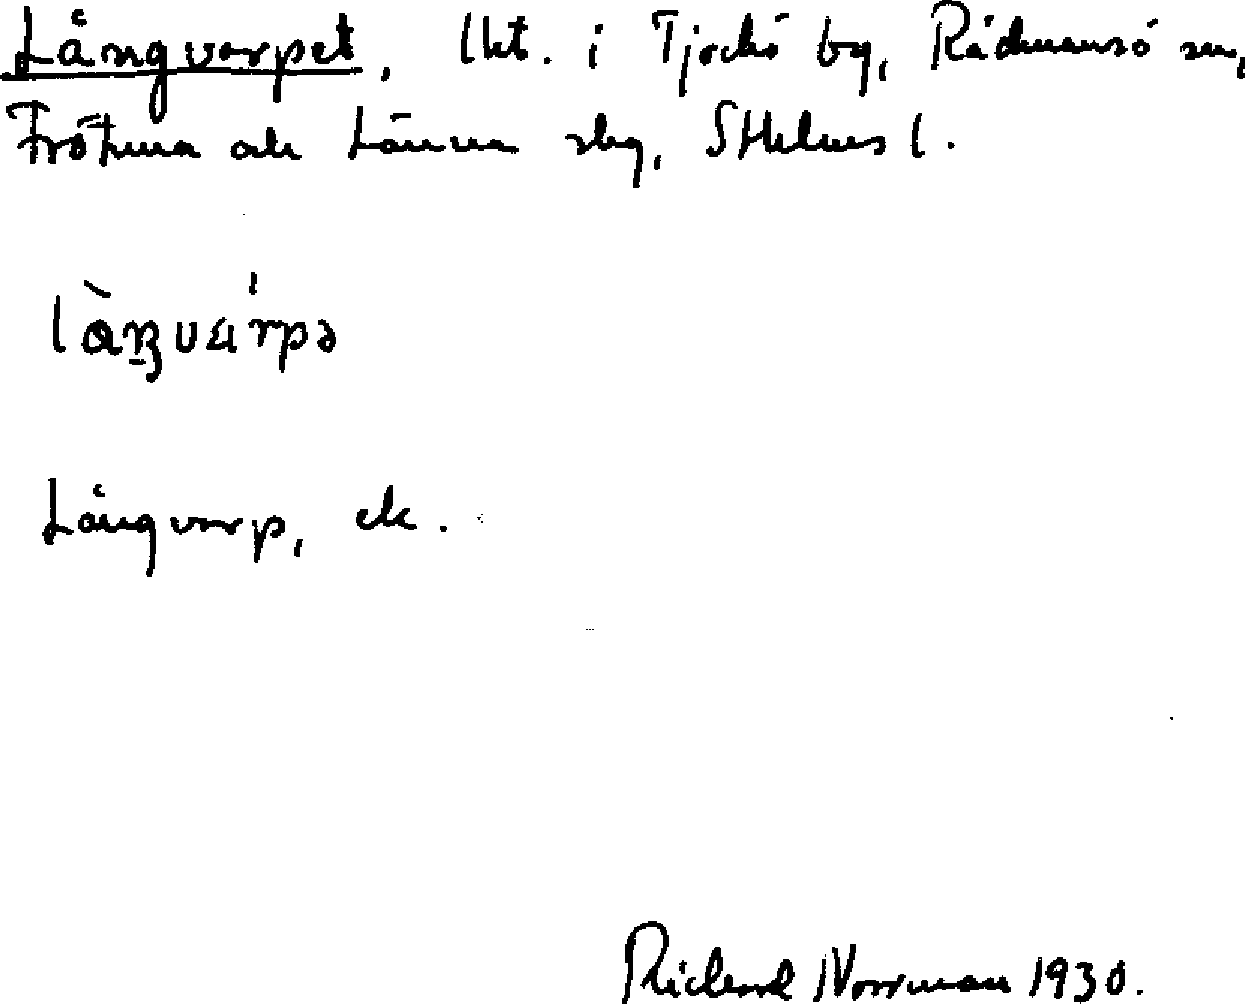 Långvarpet, lkt. i Tjockö by, Rådmansö sn,
Frötuna och Länna skg, Sthlms l.
Långvarp, ek.
Richard Norrman 1930.